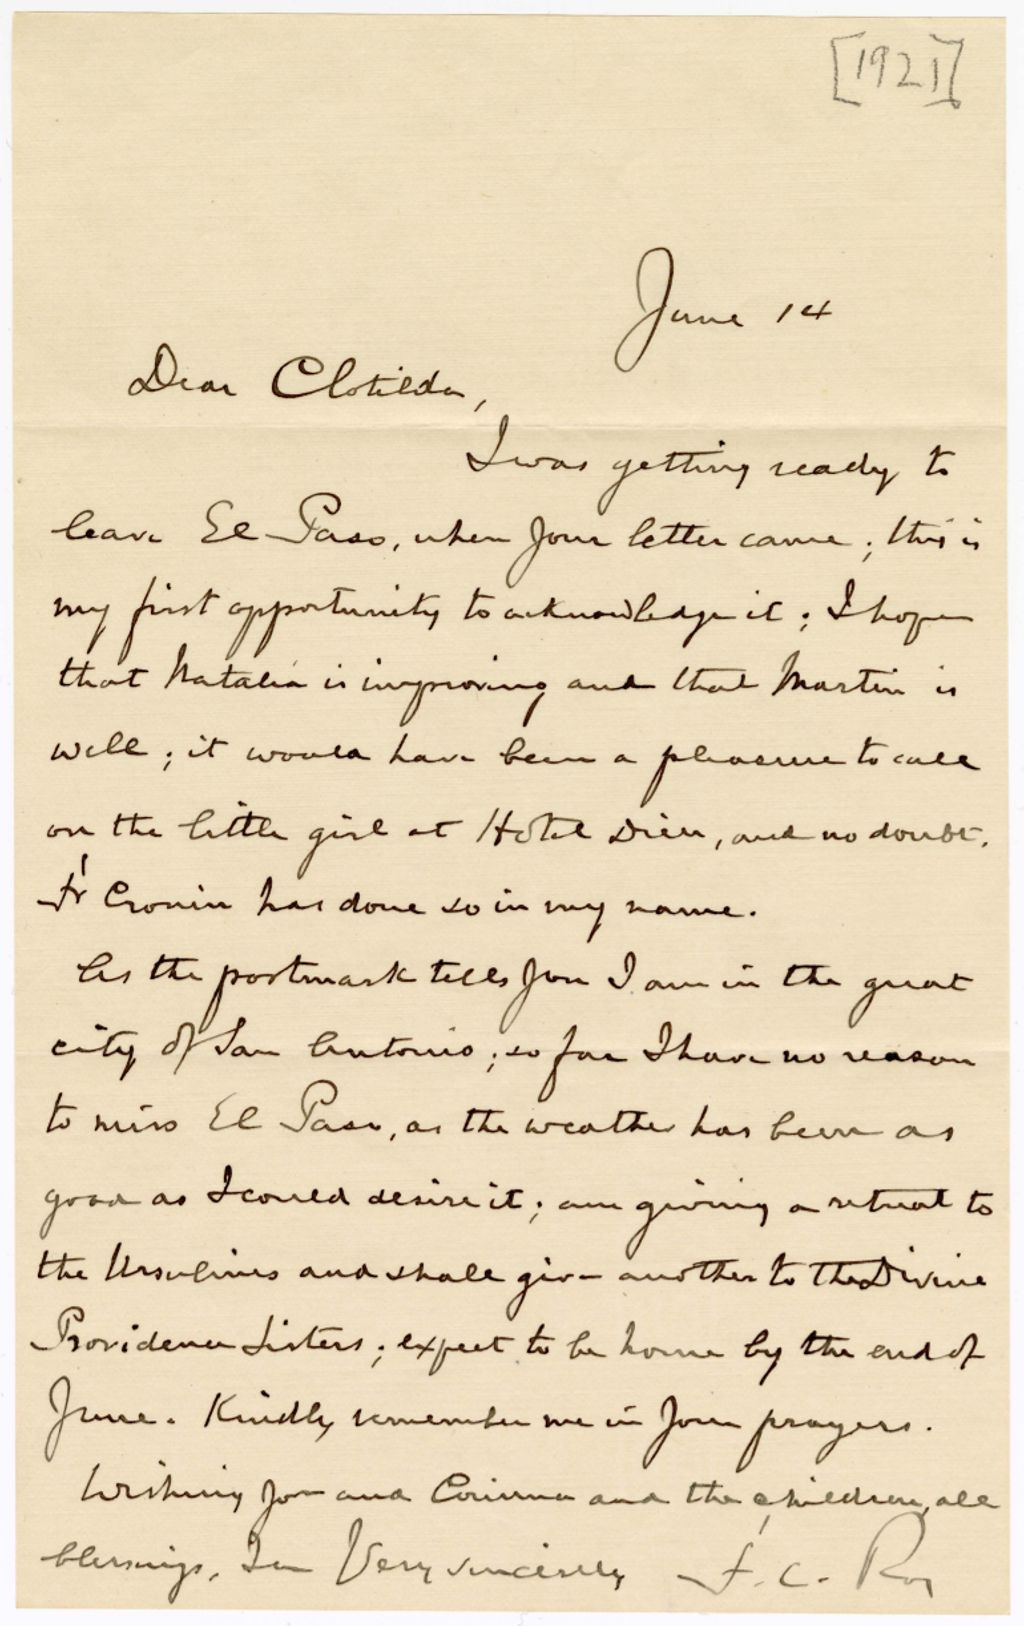 [1921]
June 14
Dear Clotilda,
I was getting ready to
leave El Paso, when your letter came; this is
my first opportunity to acknowledge it; I hope
that Natalia is improving and that Martin is
well; it would have been a pleasure to call
on the little girl at Hotel Dieu, and no doubt,
Fr Cronin has done so in my name.
As the postmark tells you I am in the great
city of San Antonio; so far I have no reason
to miss El Paso, as the weather has been as
good as I could desire it; am giving a retreat to
the Ursulines and shall give another to the Divine
Providence Sisters; expect to be home by the end of
June. Kindly remember me in your prayers.
Wishing you and Corinna and the children, all
blessings, I am Very sincerely F. C. Roy